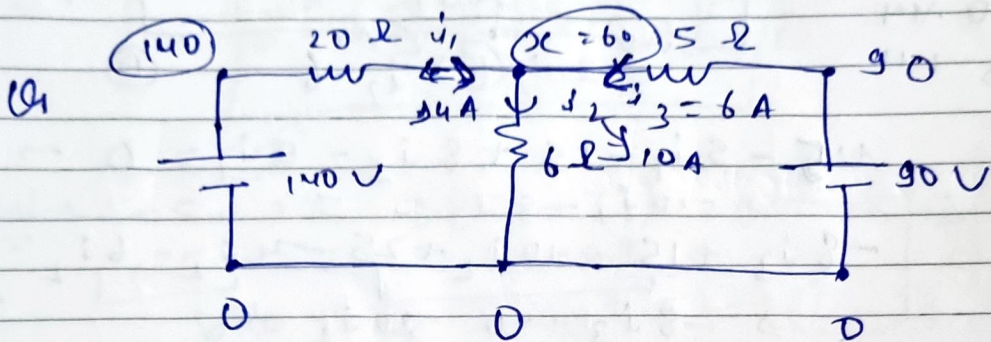 140 20 Ω i₁ x = 60 5 Ω 90
Q1
4A i₂ i₃ = 6A
6 Ω 10A
140 V 90 V
0 0 0